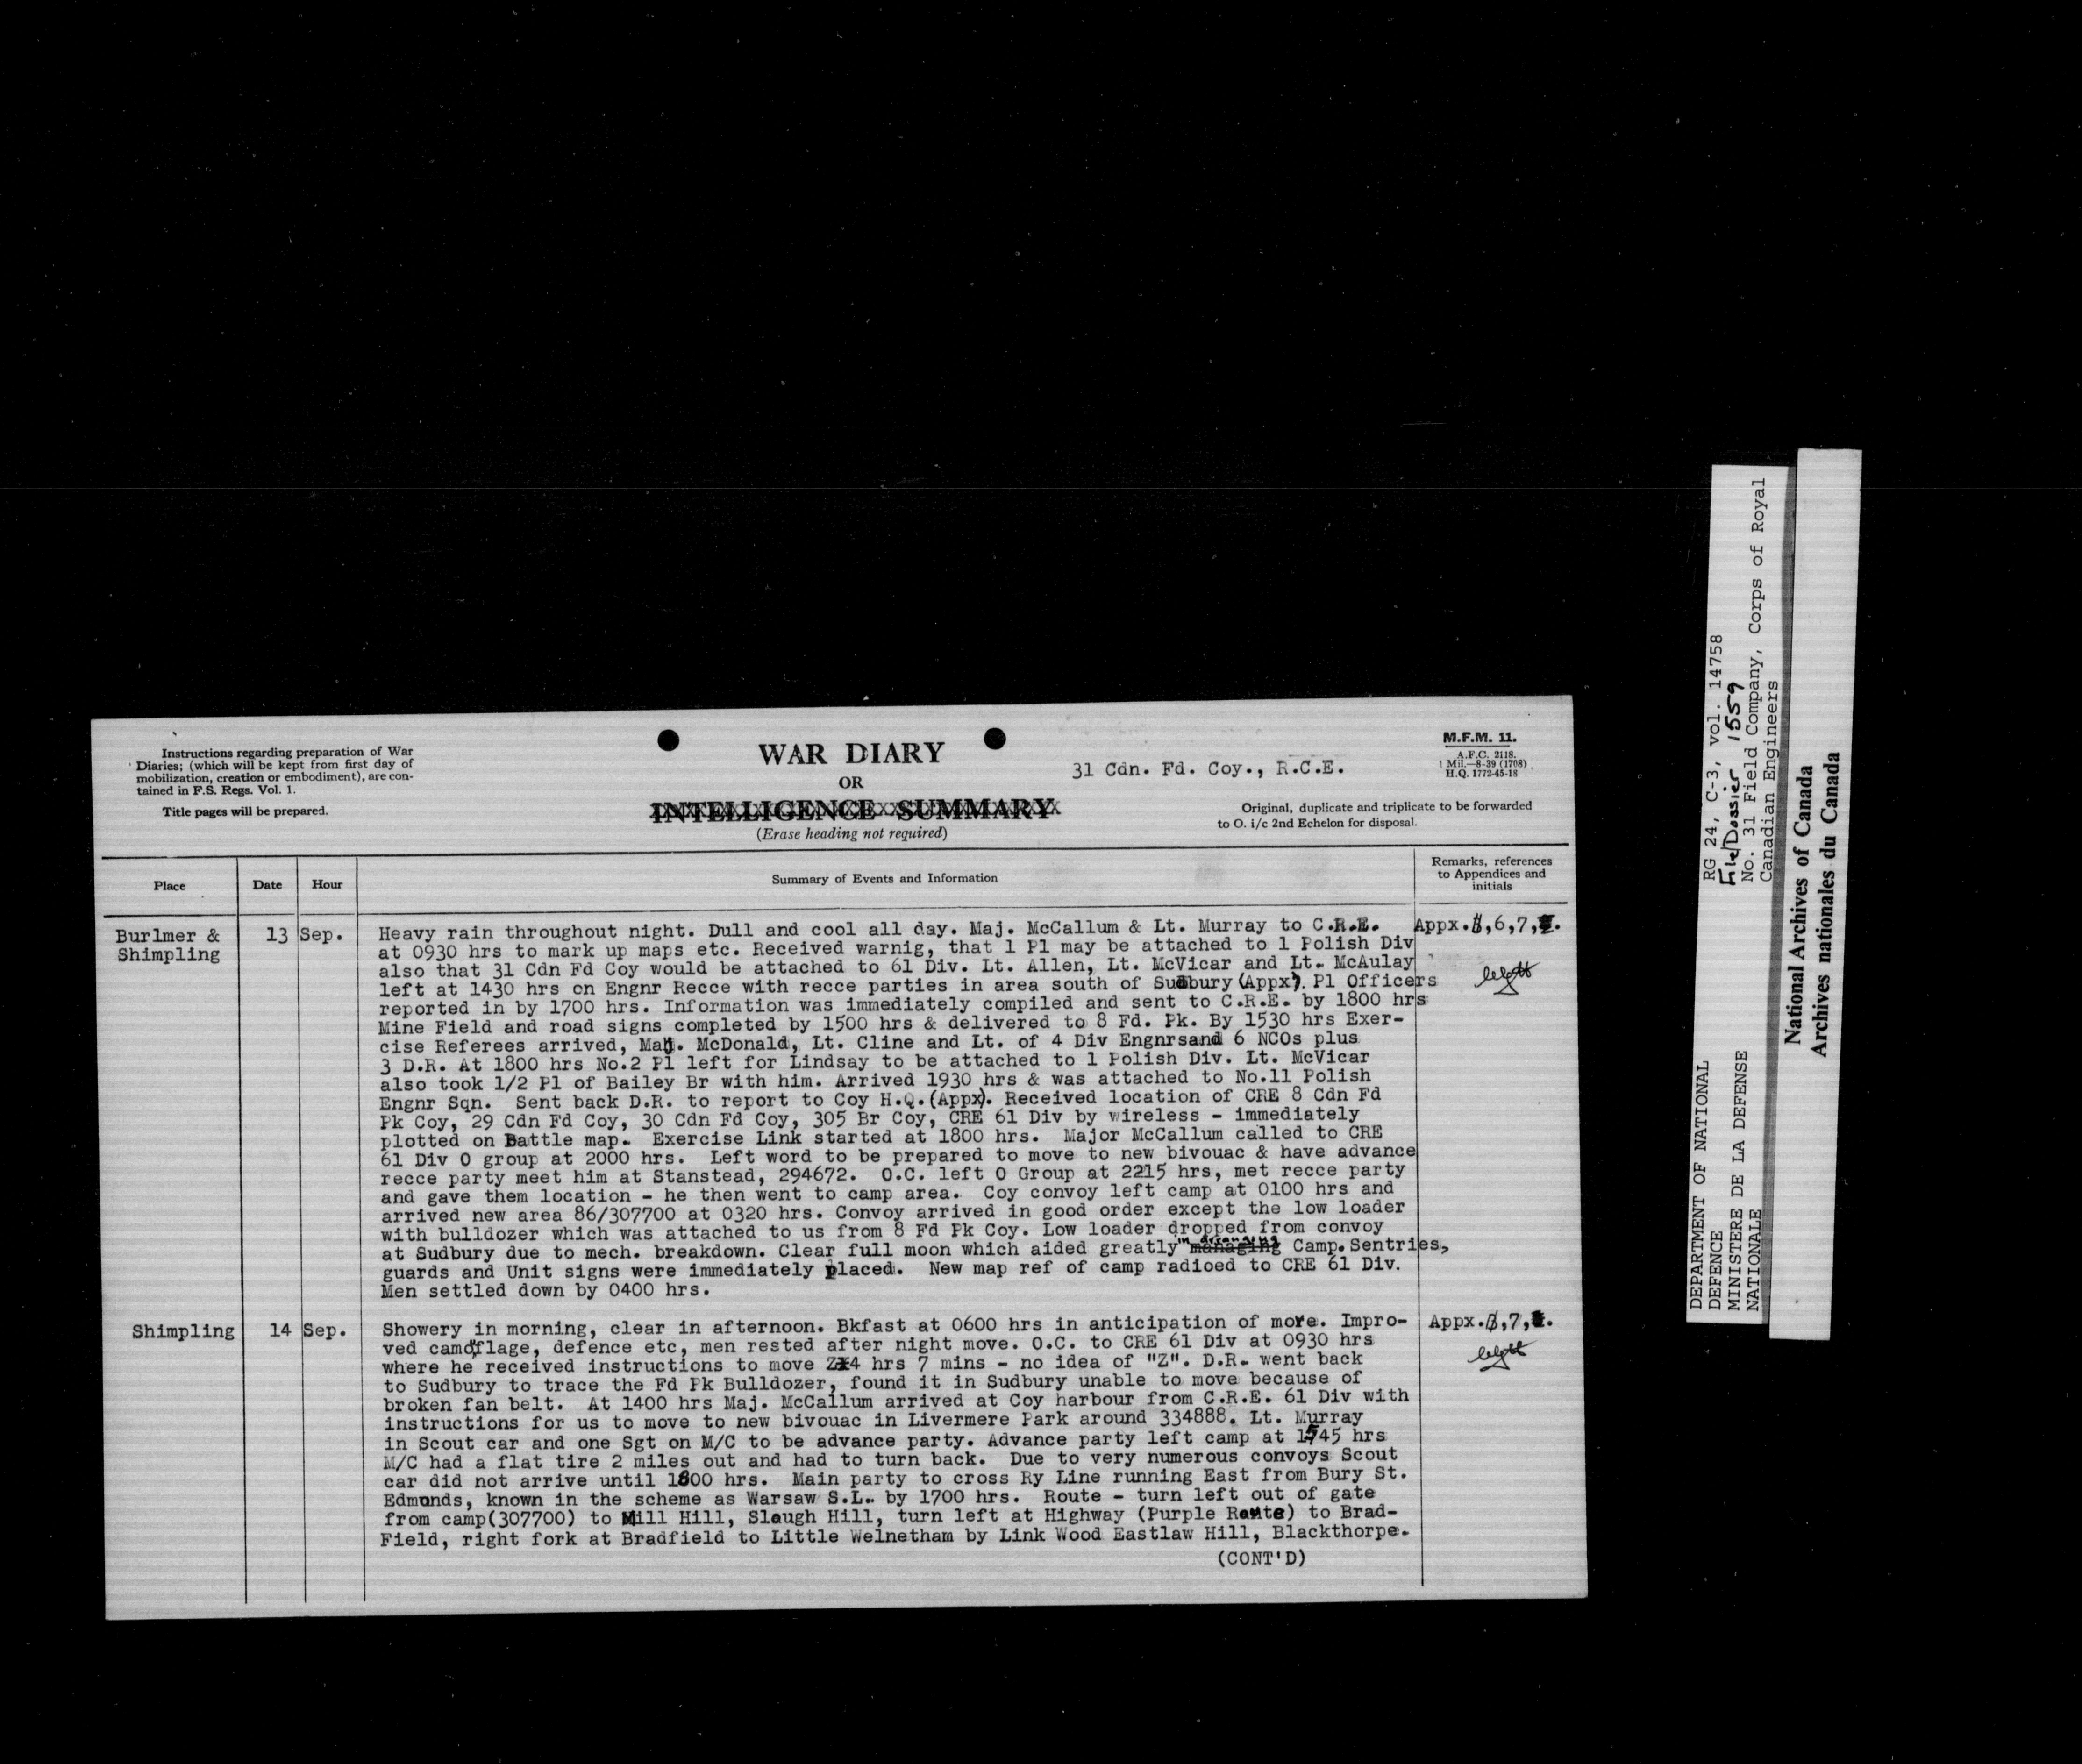 Instructions regarding preparation of War
Diaries; (which will be kept from first day of
mobilization, creation or embodiment), are con-
tained in F.S. Regs. Vol. 1.
Title pages will be prepared.
WAR DIARY
OR
INTELLIGENCE SUMMARY
(Erase heading not required)
31 Cdn. Fd. Coy., R.C.E.
M.F.M. 11.
A.F.C. 2118.
1 Mil.—8-39 (1708)
H.Q. 1772-45-18
Original, duplicate and triplicate to be forwarded
to O. i/c 2nd Echelon for disposal.
Place
Date
Hour
Summary of Events and Information
Remarks, references
to Appendices and
initials
Burlmer &
Shimpling
13 Sep.
Heavy rain throughout night. Dull and cool all day. Maj. McCallum & Lt. Murray to C.R.E.
at 0930 hrs to mark up maps etc. Received warnig, that 1 Pl may be attached to 1 Polish Div
also that 31 Cdn Fd Coy would be attached to 61 Div. Lt. Allen, Lt. McVicar and Lt. McAulay
left at 1430 hrs on Engnr Recce with recce parties in area south of Sudbury (Appx). Pl Officers
reported in by 1700 hrs. Information was immediately compiled and sent to C.R.E. by 1800 hrs
Mine Field and road signs completed by 1500 hrs & delivered to 8 Fd. Pk. By 1530 hrs Exer-
cise Referees arrived, Maj. McDonald, Lt. Cline and Lt. of 4 Div Engnrsand 6 NCOs plus
3 D.R. At 1800 hrs No.2 Pl left for Lindsay to be attached to 1 Polish Div. Lt. McVicar
also took 1/2 Pl of Bailey Br with him. Arrived 1930 hrs & was attached to No.11 Polish
Engnr Sqn. Sent back D.R. to report to Coy H.Q.(Appx). Received location of CRE 8 Cdn Fd
Pk Coy, 29 Cdn Fd Coy, 30 Cdn Fd Coy, 305 Br Coy, CRE 61 Div by wireless - immediately
plotted on Battle map. Exercise Link started at 1800 hrs. Major McCallum called to CRE
61 Div O group at 2000 hrs. Left word to be prepared to move to new bivouac & have advance
recce party meet him at Stanstead, 294672. O.C. left O Group at 2215 hrs, met recce party
and gave them location - he then went to camp area. Coy convoy left camp at 0100 hrs and
arrived new area 86/307700 at 0320 hrs. Convoy arrived in good order except the low loader
with bulldozer which was attached to us from 8 Fd Pk Coy. Low loader dropped from convoy
at Sudbury due to mech. breakdown. Clear full moon which aided greatly in arranging managing Camp. Sentries,
guards and Unit signs were immediately placed. New map ref of camp radioed to CRE 61 Div.
Men settled down by 0400 hrs.
Appx. ,6,7, .
Shimpling
14 Sep.
Showery in morning, clear in afternoon. Bkfast at 0600 hrs in anticipation of more. Impro-
ved camouflage, defence etc, men rested after night move. O.C. to CRE 61 Div at 0930 hrs
where he received instructions to move Z 4 hrs 7 mins - no idea of "Z". D.R. went back
to Sudbury to trace the Fd Pk Bulldozer, found it in Sudbury unable to move because of
broken fan belt. At 1400 hrs Maj. McCallum arrived at Coy harbour from C.R.E. 61 Div with
instructions for us to move to new bivouac in Livermere Park around 334888. Lt. Murray
in Scout car and one Sgt on M/C to be advance party. Advance party left camp at 1545 hrs
M/C had a flat tire 2 miles out and had to turn back. Due to very numerous convoys Scout
car did not arrive until 1800 hrs. Main party to cross Ry Line running East from Bury St.
Edmunds, known in the scheme as Warsaw S.L. by 1700 hrs. Route - turn left out of gate
from camp(307700) to Mill Hill, Slough Hill, turn left at Highway (Purple Route) to Brad-
Field, right fork at Bradfield to Little Welnetham by Link Wood Eastlaw Hill, Blackthorpe.
(CONT'D)
Appx. ,7, .
DEPARTMENT OF NATIONAL
DEFENCE
MINISTERE DE LA DEFENSE
NATIONALE
RG 24, C-3, vol. 14758
File/Dossier 1559
No. 31 Field Company, Corps of Royal
Canadian Engineers
National Archives of Canada
Archives nationales du Canada